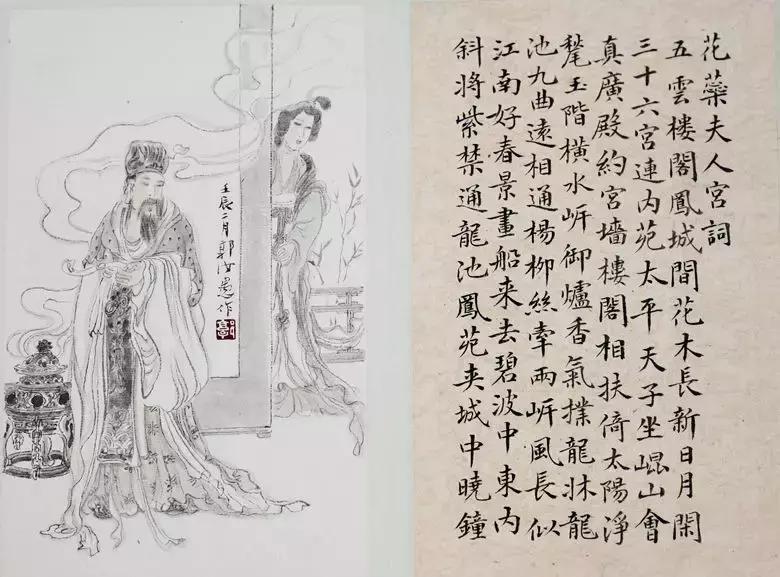 花蘂夫人宮詞
五雲楼閣鳳城間花木長新日月閑
三十六宮連内苑太平天子坐崐山會
真廣殿約宮墻樓閣相扶倚太陽淨
甃玉階橫水岍御爐香氣撲龍牀龍
池九曲遠相通楊柳絲牽兩岍風長似
江南好春景畫船来去碧波中東内
斜將紫禁通龍池鳳苑夹城中曉鐘
壬辰二月郭汝愚作